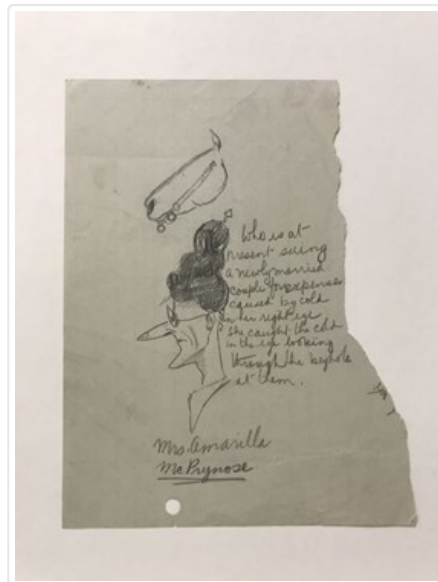 Who is at
present suing
a newly married
couple for expenses
caused by cold
in her right eye
She caught the cold
in the eye looking
through the keyhole
at them.
Mrs. Amarilla
McPrynose